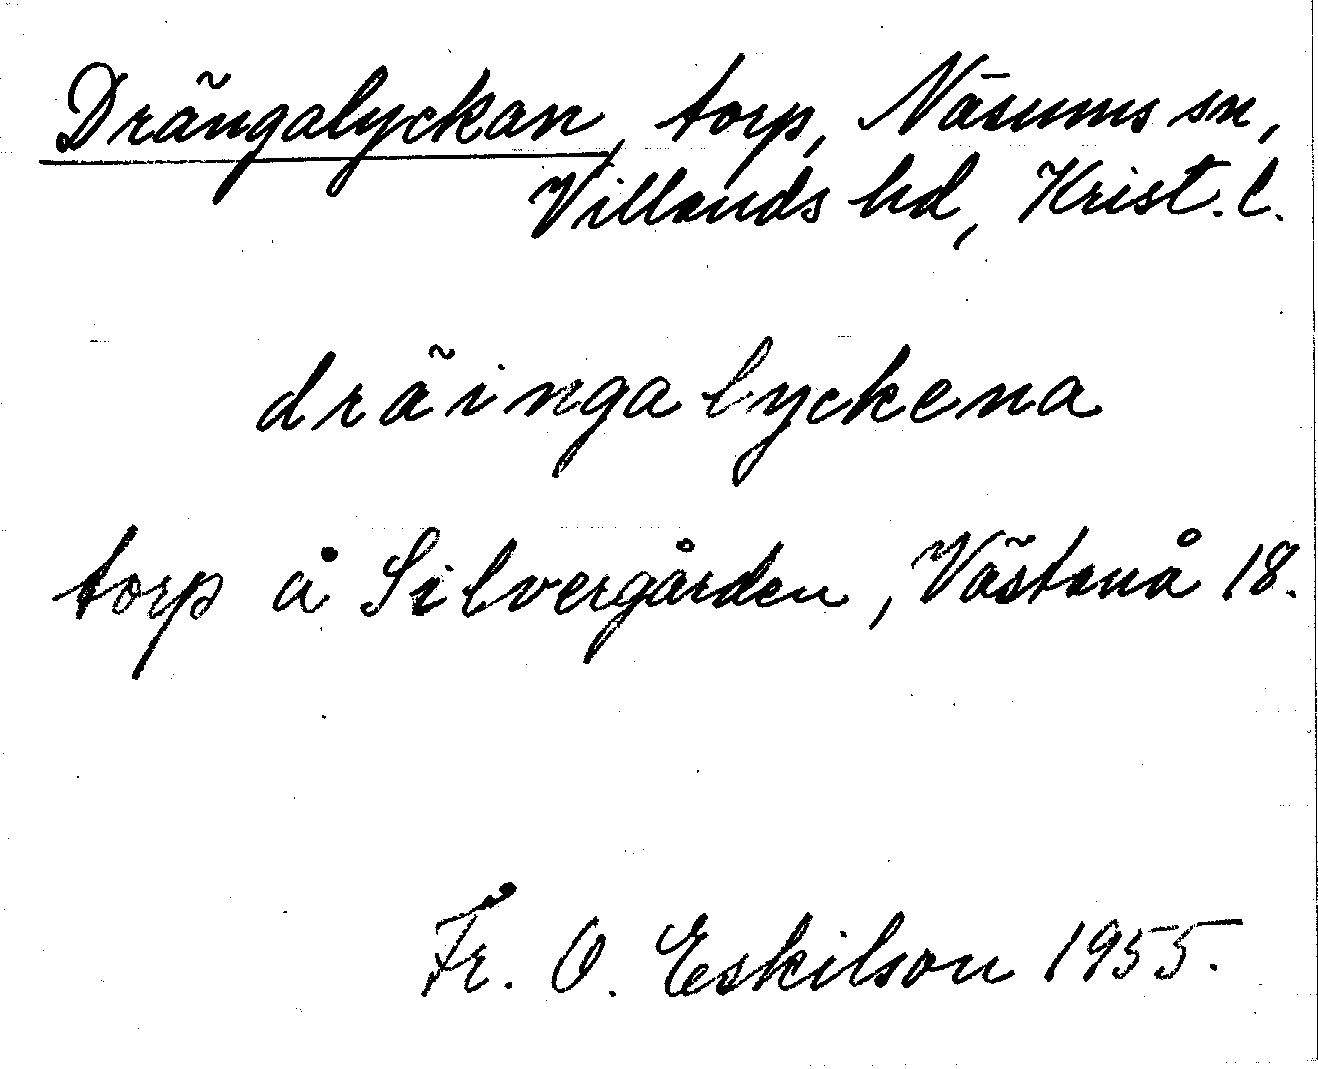 Drängalyckan, torp, Näsums sn,
Villands hd, Krist. l.
dräingalyckena
torp å Silvergården, Västanå 18.
Fr. O. Eskilson 1955.